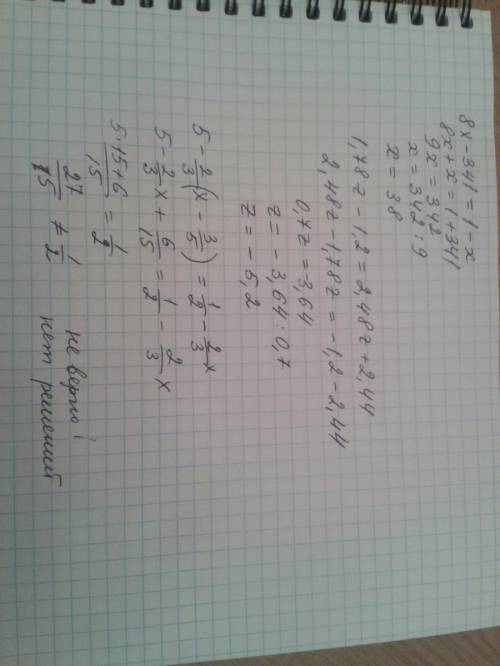 8x-341=1-x
8x+x=1+341
9x=342
x=342:9
x=38
1,78z-1,2=2,48z+2,44
2,48z-1,78z=-1,2-2,44
0,7z=-3,64
z=-3,64:0,7
z=-5,2
5-2/3(x-3/5)=1/2-2/3x
5-2/3x+6/15=1/2-2/3x
5·15+6/15=1/2
27/15≠1/2 не верно!
нет решений